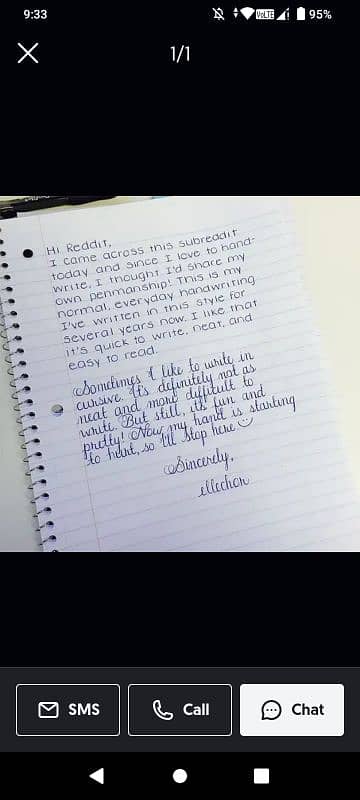 9:33
VoLTE
95%
1/1
Hi Reddit,
I came across this subreddit
today and since I love to hand-
write, I thought I'd share my
own penmanship! This is my
normal, everyday handwriting
I've written in this style for
several years now. I like that
it's quick to write, neat, and
easy to read.
Sometimes I like to write in
cursive. It's definitely not as
neat and more difficult to
write. But still, its fun and
pretty! Now my hand is starting
to hurt, so I'll stop here
Sincerely,
SMS
Call
Chat